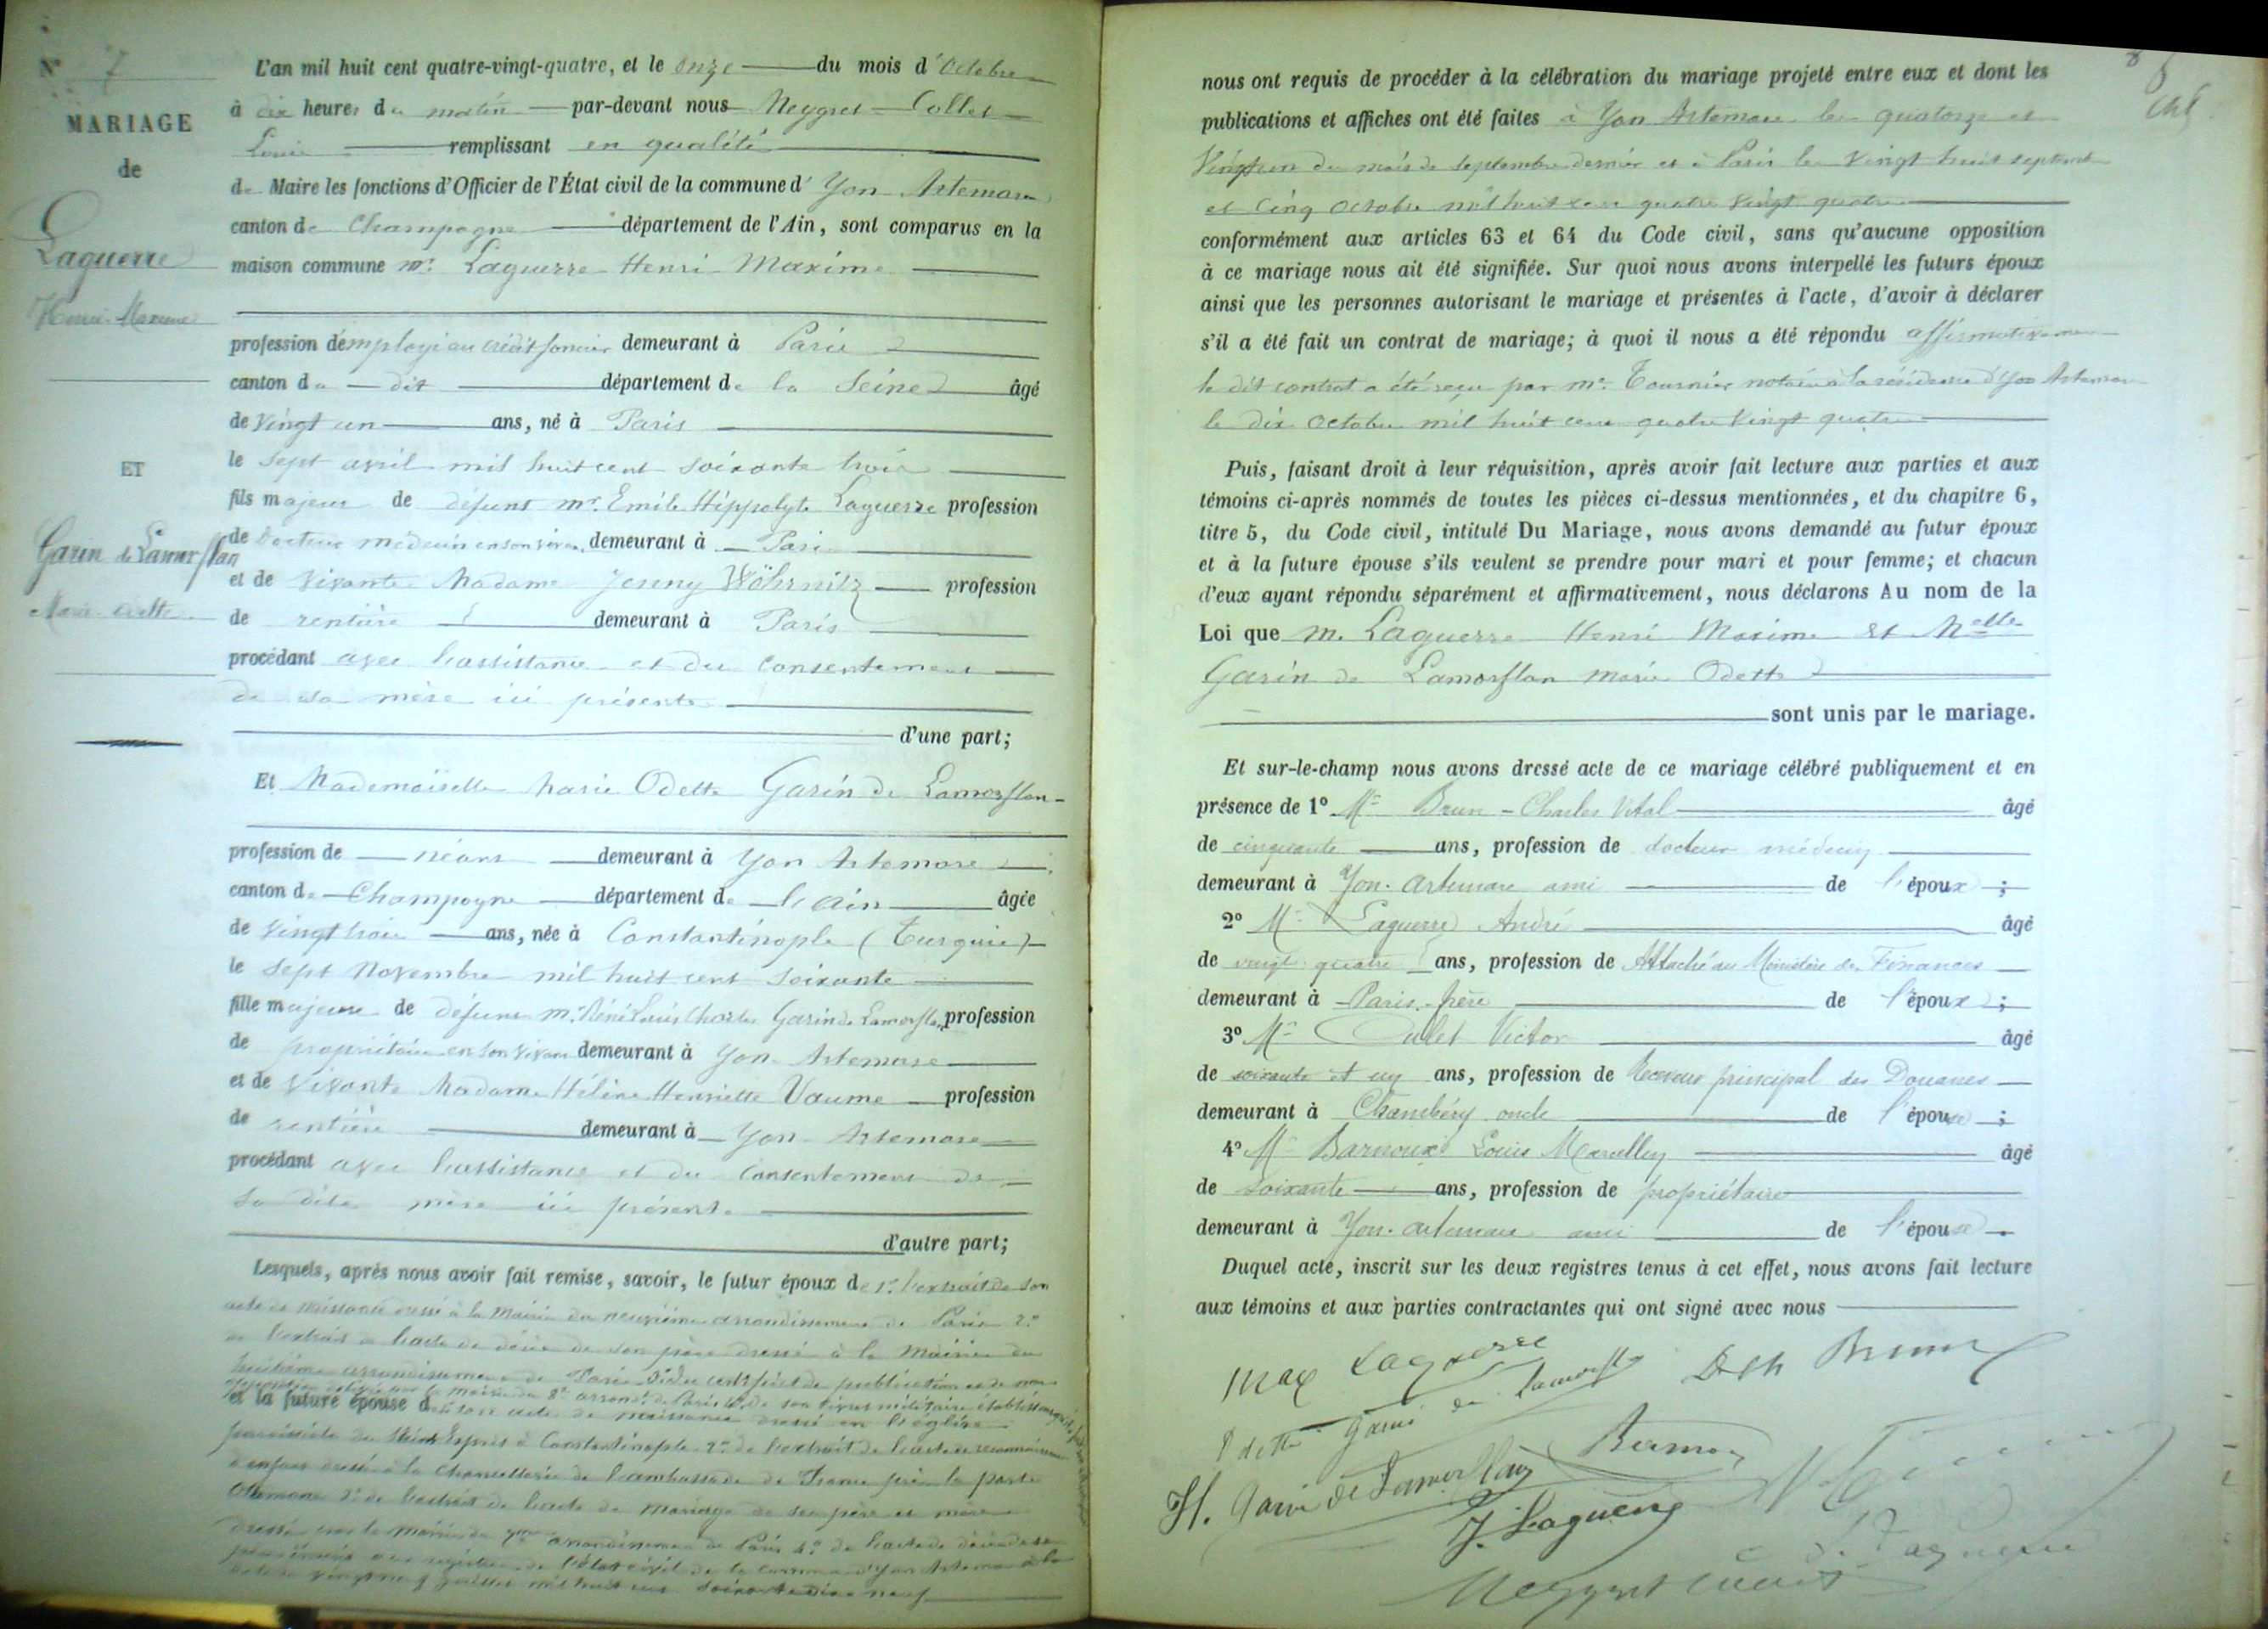 N° 7
MARIAGE
de
Laguerre
Henri Maxime
ET
Garin de Lamorflan
Marie Odette
L'an mil huit cent quatre-vingt-quatre, et le onze du mois d'Octobre
à dix heures du matin par-devant nous Meygret-Collet
Louis remplissant en qualité
de Maire les fonctions d'Officier de l'État civil de la commune d'Yon Artemare
canton de Champagne département de l'Ain, sont comparus en la
maison commune mr. Laguerre Henri Maxime
profession d'employé au crédit foncier demeurant à Paris
canton du dit département de la Seine âgé
de vingt un ans, né à Paris
le sept avril mil huit cent soixante trois
fils majeur de défunt mr. Emile Hippolyte Laguerre profession
de Docteur médecin en son vivant demeurant à Paris
et de vivante Madame Jenny Wöhrnitz profession
de rentière demeurant à Paris
procédant avec l'assistance et du consentement
de sa mère ici présente
d'une part;
Et Mademoiselle Marie Odette Garin de Lamorflan
profession de néant demeurant à Yon Artemare
canton de Champagne département de l'ain âgée
de vingt trois ans, née à Constantinople (Turquie)
le sept Novembre mil huit cent soixante
fille majeure de défunt mr. Réné Louis Charles Garin de Lamorflan profession
de propriétaire en son vivant demeurant à Yon Artemare
et de vivante Madame Hélène Henriette Vaume profession
de rentière demeurant à Yon Artemare
procédant avec l'assistance et du consentement de
sa dite mère ici présente
d'autre part;
Lesquels, après nous avoir fait remise, savoir, le futur époux de 1° l'extrait de son
acte de naissance dressé à la Mairie du neuvième arrondissement de Paris 2°
de l'extrait de l'acte de décès de son père dressé à la Mairie du
huitième arrondissement de Paris 3° du certificat de publication et de non
opposition la mairie du 8e arrondt. de Paris 4° de son livret militaire
et la future épouse de son acte de naissance dressé en l'église
paroissiale du Saint Esprit à Constantinople 2° de l'extrait de l'acte de reconnaissance
d'enfant dressé à la chancellerie de l'ambassade de France près la porte
Ottomane 3° de l'extrait de l'acte de mariage de ses père et mère
dressé par la mairie du 7me arrondissement de Paris 4° de l'acte de décès de son
père aux registres de l'état civil de la commune d'Yon Artemare à la
date du vingt neuf juillet mil huit cent soixante dix neuf
8
nous ont requis de procéder à la célébration du mariage projeté entre eux et dont les
publications et affiches ont été faites à Yon Artemare les quatorze et
vingt un du mois de septembre dernier et à Paris les vingt huit septembre
et cinq octobre mil huit cent quatre vingt quatre
conformément aux articles 63 et 64 du Code civil, sans qu'aucune opposition
à ce mariage nous ait été signifiée. Sur quoi nous avons interpellé les futurs époux
ainsi que les personnes autorisant le mariage et présentes à l'acte, d'avoir à déclarer
s'il a été fait un contrat de mariage; à quoi il nous a été répondu affirmativement
le dit contrat a été reçu par me. Tournier notaire à la résidence d'Yon Artemare
le dix octobre mil huit cent quatre vingt quatre
Puis, faisant droit à leur réquisition, après avoir fait lecture aux parties et aux
témoins ci-après nommés de toutes les pièces ci-dessus mentionnées, et du chapitre 6,
titre 5, du Code civil, intitulé Du Mariage, nous avons demandé au futur époux
et à la future épouse s'ils veulent se prendre pour mari et pour femme; et chacun
d'eux ayant répondu séparément et affirmativement, nous déclarons Au nom de la
Loi que m. Laguerre Henri Maxime et Melle
Garin de Lamorflan Marie Odette
sont unis par le mariage.
Et sur-le-champ nous avons dressé acte de ce mariage célébré publiquement et en
présence de 1° Mr Brun-Charles Vital âgé
de cinquante ans, profession de docteur médecin
demeurant à Yon-artemare ami de l'époux;
2° Mr Laguerre André âgé
de vingt quatre ans, profession de Attaché au Ministère des Finances
demeurant à Paris. frère de l'époux;
3° Mr Culet Victor âgé
de soixante et un ans, profession de Receveur principal des Douanes
demeurant à Chambéry oncle de l'épouse;
4° Mr Barnoux Louis Marcellin âgé
de soixante ans, profession de propriétaire
demeurant à Yon-artemare ami de l'épouse.
Duquel acte, inscrit sur les deux registres tenus à cet effet, nous avons fait lecture
aux témoins et aux parties contractantes qui ont signé avec nous
Max Laguerre
Brun
Odette Garin de Lamorflan
H. Garin de Lamorflan
J. Laguerre
Laguerre